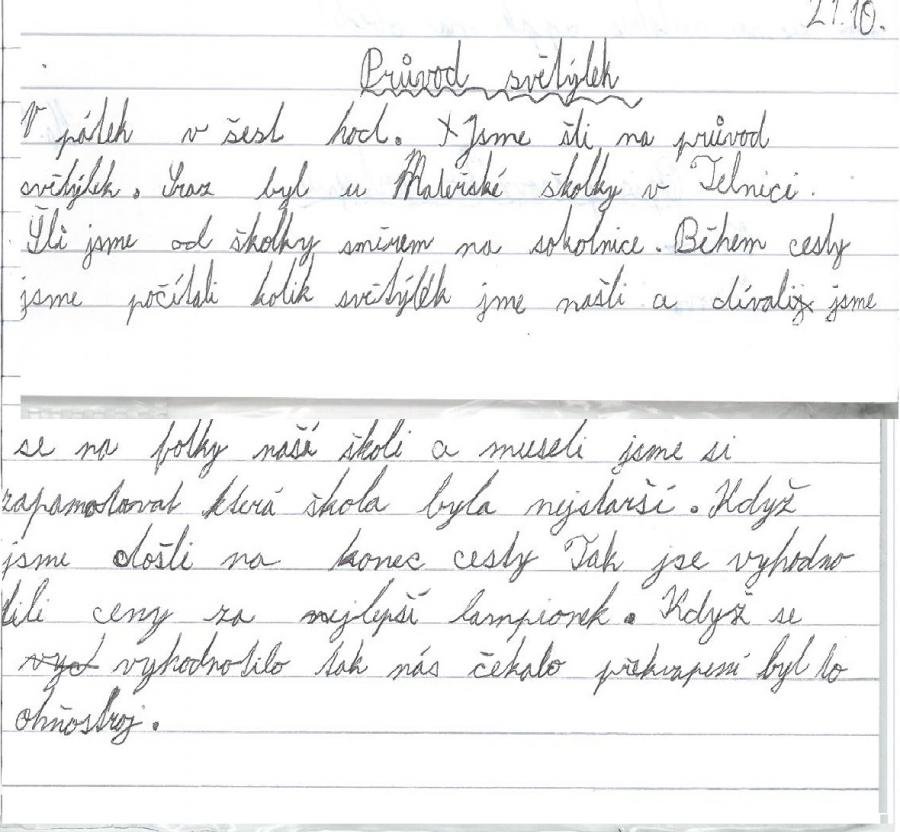 21.10.
Průvod světýlek
V pátek v šest hod. Jsme šli na průvod
světýlek. Sraz byl u Mateřské školky v Telnici.
Šli jsme od školky směrem na sokolnice. Během cesty
jsme počítali kolik světýlek jme našli a dívali jsme
se na fotky naší školi a museli jsme si
zapamatovat která škola byla nejstarší. Když
jsme došli na konec cesty Tak jse vyhodno
tili ceny za nejlepší lampionek. Když se
vyd vyhodnotilo tak nás čekalo překvapení byl to
ohňostroj.